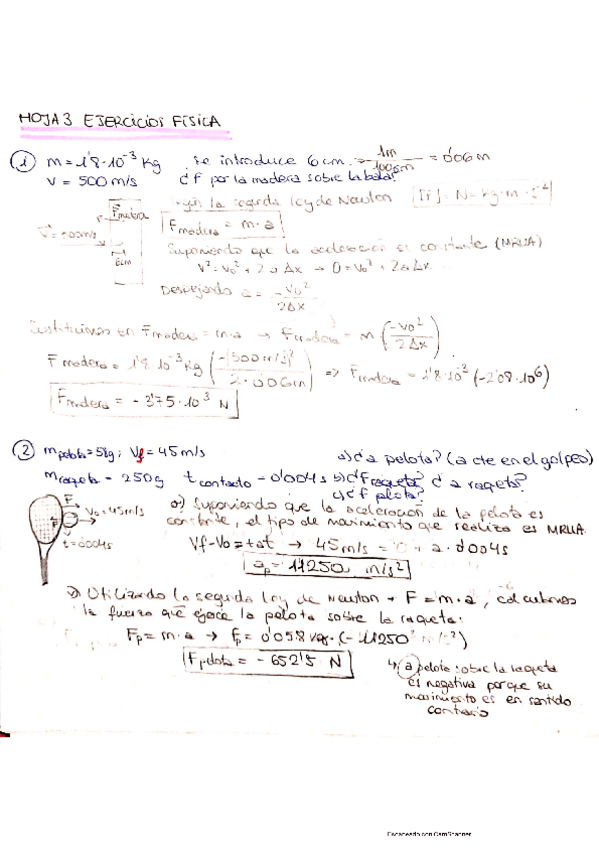 HOJA 3 EJERCICIOS FÍSICA
① m = 1'8·10⁻³ Kg , se introduce 6 cm. · 1m/100cm = 0'06 m
v = 500 m/s ¿F por la madera sobre la bala?
la segunda ley de Newton [F] = N = Kg·m·s⁻²
Fmadera
Fmadera = m·a
Suponiendo que la aceleración es constante (MRUA)
6cm
V² = V₀² + 2a Δx → 0 = V₀² + 2a Δx
Despejando a = -V₀²/2Δx
Sustituimos en Fmadera = m·a → Fmadera = m (-V₀²/2Δx)
Fmadera = 1'8·10⁻³ Kg (-(500 m/s)²/2·0'06m) => Fmadera = 1'8·10⁻³ (-2'08·10⁶)
Fmadera = -3'75·10³ N
② mpelota = 58g ; Vf = 45 m/s a) ¿a pelota? (a cte en el golpeo)
mraqueta = 250g t contacto = 0'004s b) ¿F raqueta? ¿a raqueta?
c) ¿F pelota?
a) Suponiendo que la aceleración de la pelota es
constante, el tipo de movimiento que realiza es MRUA.
V₀ = 45m/s
t = 0'004s
Vf - V₀ = t·at → 45 m/s = 0 + a · 0'004s
ap = 11250 m/s²
Utilizando la segunda ley de Newton → F = m·a, calculamos
la fuerza que ejerce la pelota sobre la raqueta:
Fp = m·a → Fp = 0'058 Kg · (-11250 m/s²)
Fpelota = -652'5 N
↳ a pelota sobre la raqueta
es negativa porque su
movimiento es en sentido
contrario
Escaneado con CamScanner